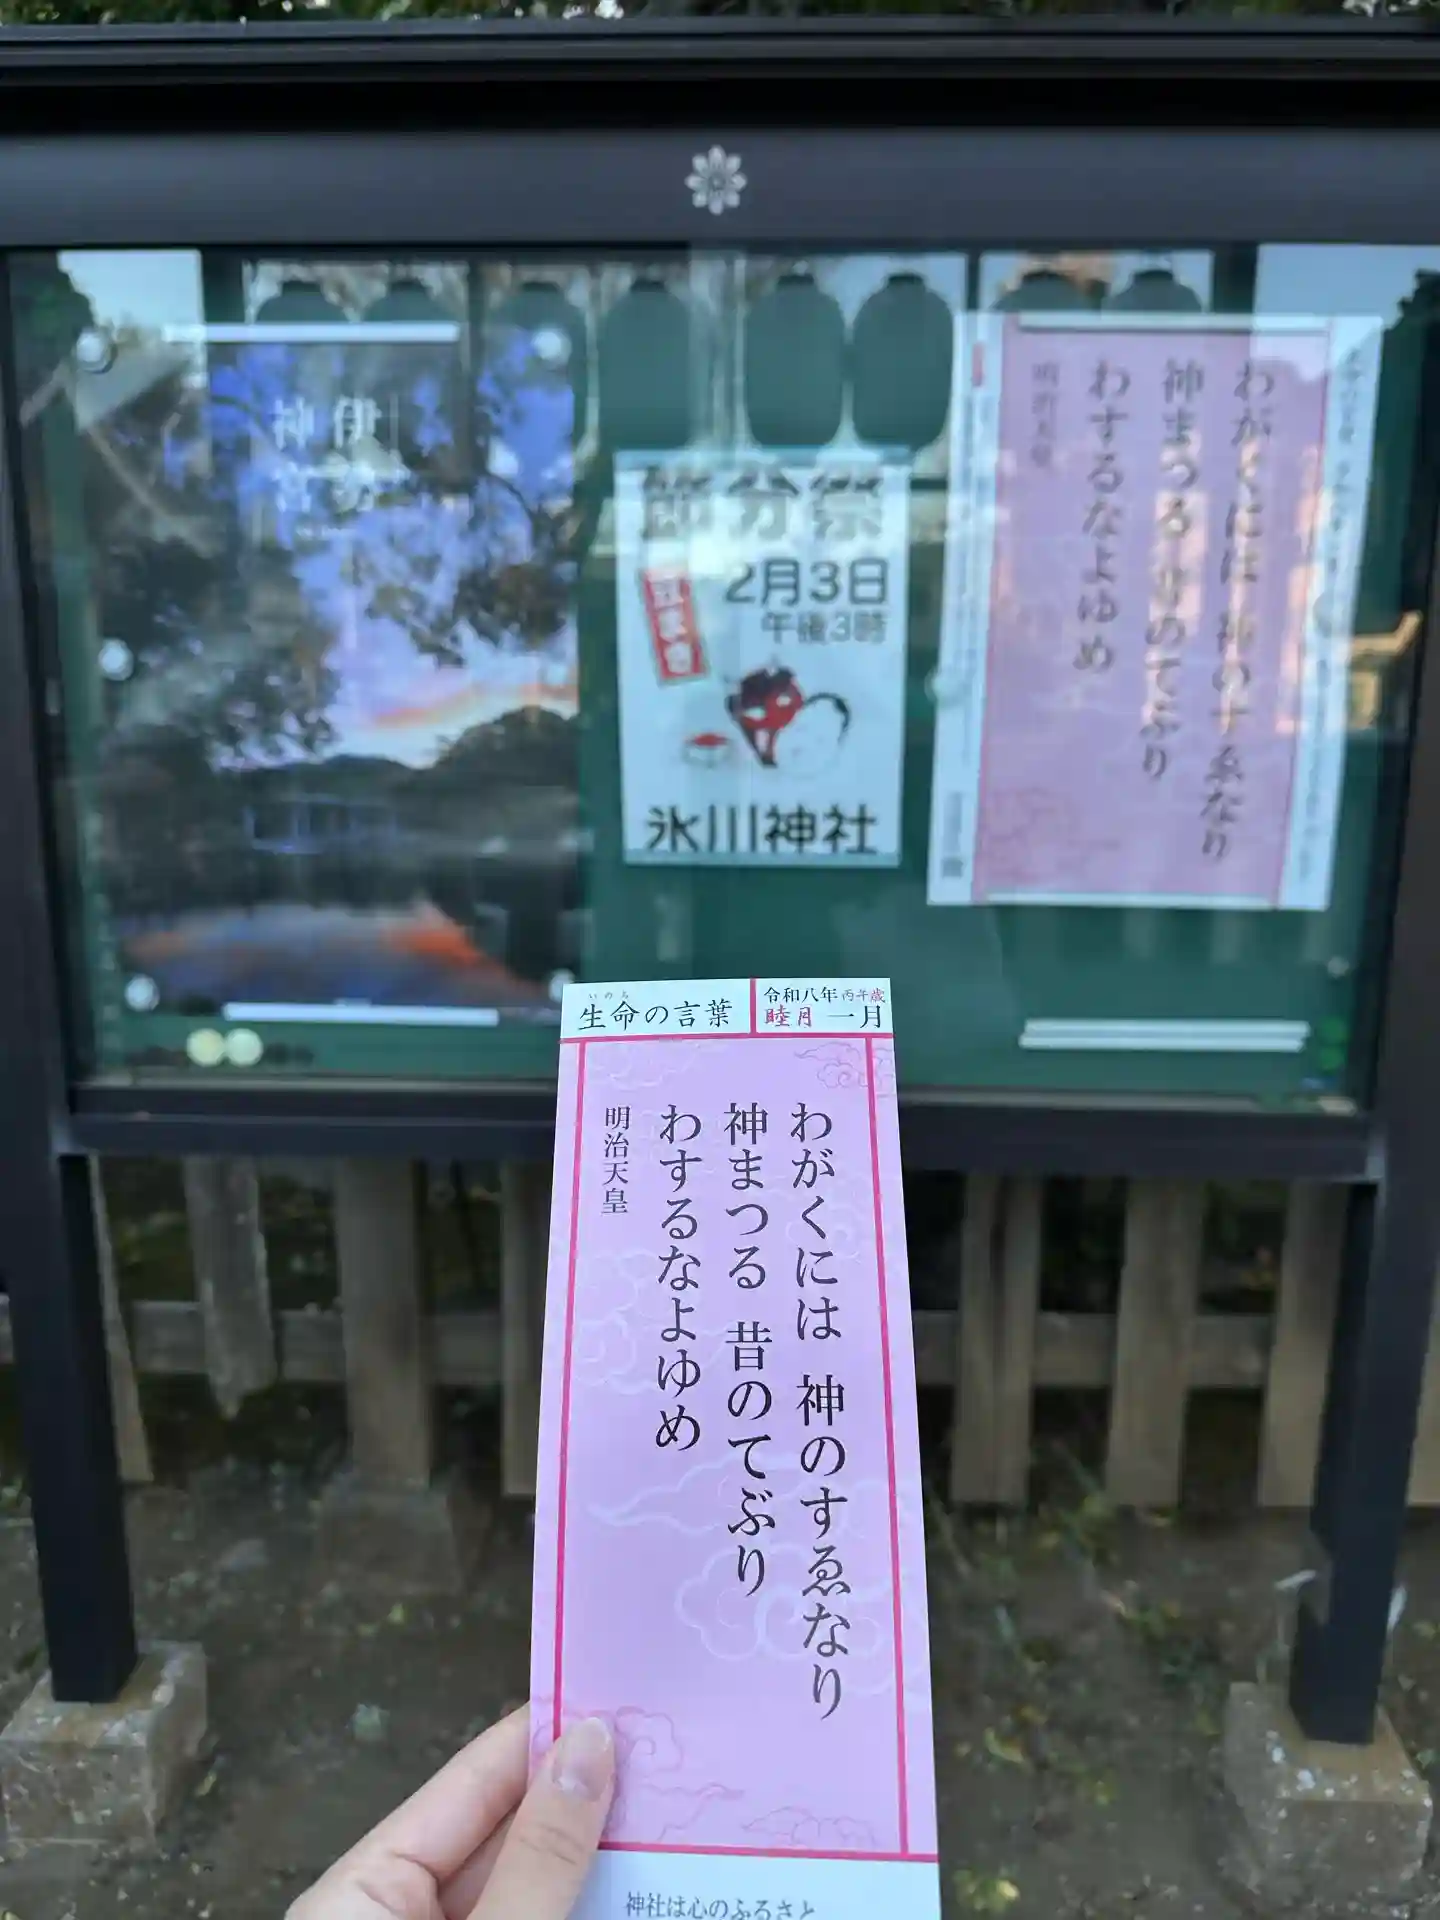 節分祭
2月3日
午後3時
豆まき
氷川神社
わがくには 神のすゑなり
神まつる 昔のてぶり
わするなよゆめ
明治天皇
いのち
生命の言葉
令和八年 丙午歳
睦月 一月
わがくには 神のすゑなり
神まつる 昔のてぶり
わするなよゆめ
明治天皇
神社は心のふるさと